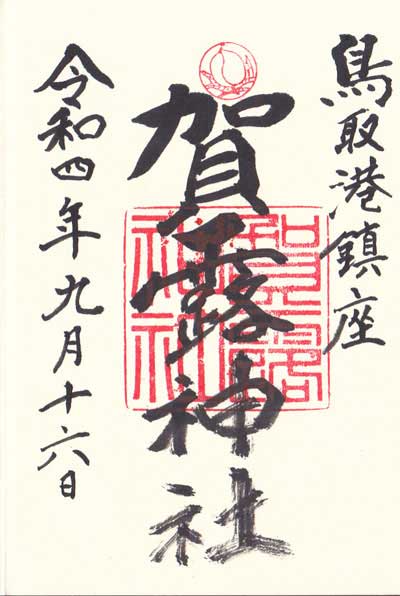 鳥取港鎮座
賀露神社
賀露
神社
令和四年九月十六日